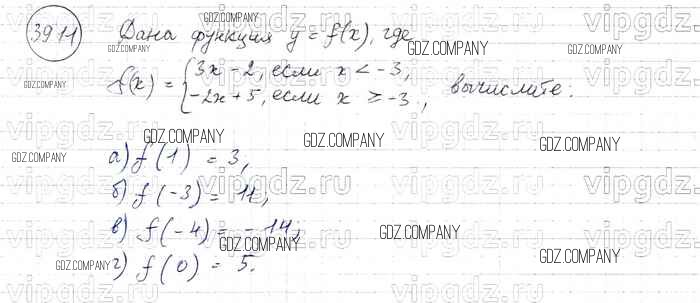 39.11 Дана функция y = f(x), где
f(x) = { 3x - 2, если x < -3,
-2x + 5, если x ≥ -3, вычислите:
а) f(1) = 3,
б) f(-3) = 11,
в) f(-4) = -14;
г) f(0) = 5.
GDZ.COMPANY
GDZ.COMPANY
GDZ.COMPANY
GDZ.COMPANY
GDZ.COMPANY
GDZ.COMPANY
GDZ.COMPANY
GDZ.COMPANY
GDZ.COMPANY
GDZ.COMPANY
GDZ.COMPANY
GDZ.COMPANY
GDZ.COMPANY
vipgdz.ru
vipgdz.ru
vipgdz.ru
vipgdz.ru
vipgdz.ru
vipgdz.ru
vipgdz.ru
vipgdz.ru
vipgdz.ru